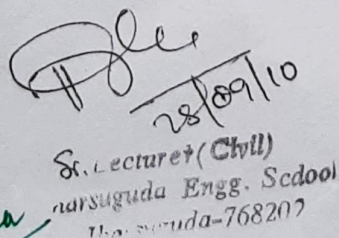 28/09/10
Sr. Lecturer (Civil)
narsuguda Engg. School
uda-768202